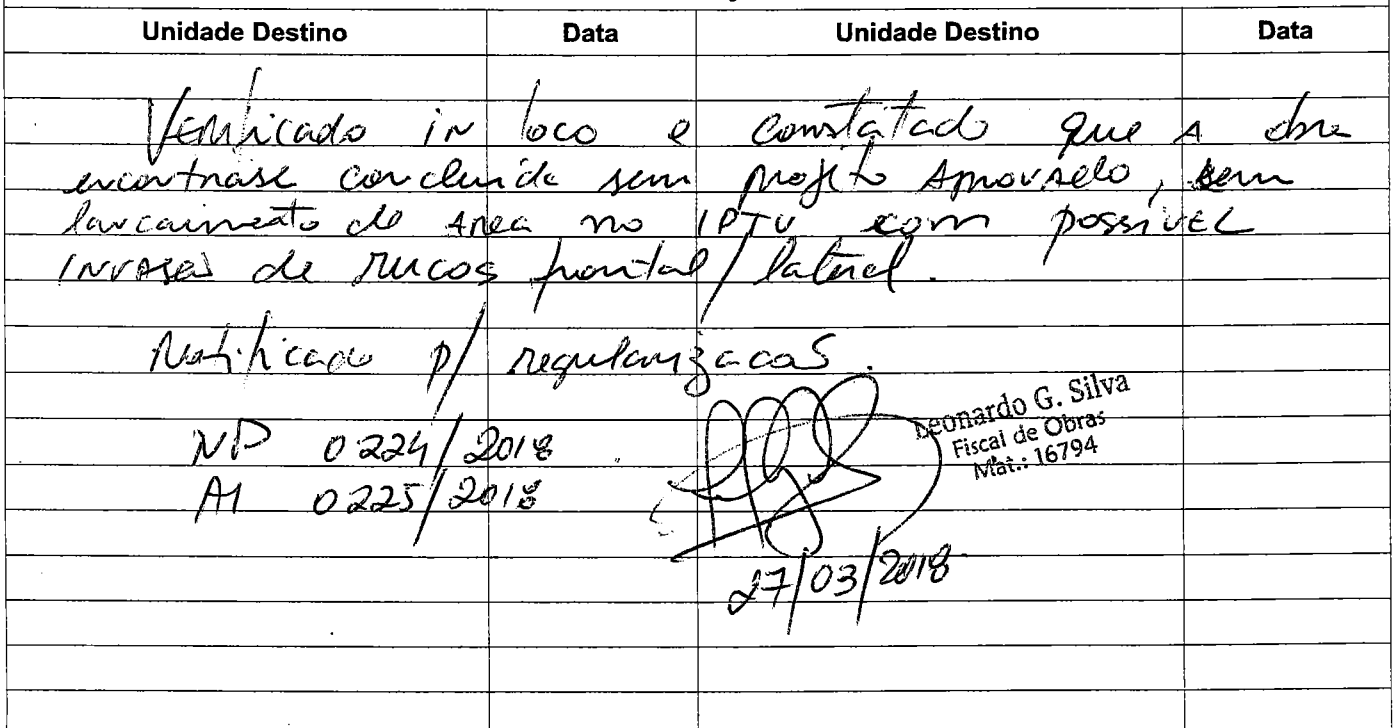 Unidade Destino Data Unidade Destino Data
Verificado in loco e constatado que a obra
encontrase concluida sem projeto aprovado, sem
lancamento de area no IPTU com possivel
invasao de recuos frontal/lateral.
Notificado p/ regularizacao.
Leonardo G. Silva
Fiscal de Obras
Mat.: 16794
NP 0224/2018
AI 0225/2018
27/03/2018